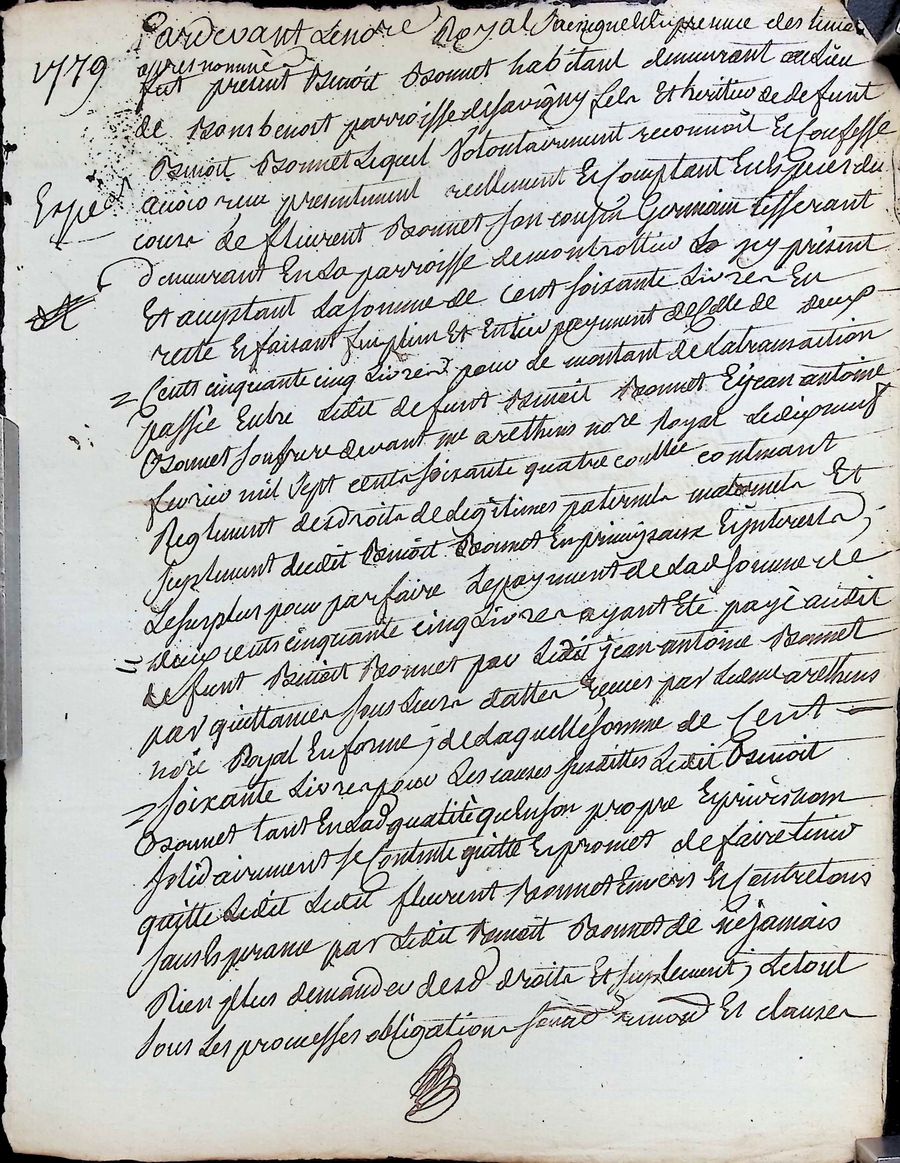 1779
Pardevant Le nore Royal Et en presence des temoins
apres nommés
fut present Benoit Bonnet habitant demeurant au Lieu
de paroisse de Savigny fils Et heritier de defunt
Benoit Bonnet Lequel volontairement reconnoit Et Confesse
Exped
avoir reçu presentement reellement Et Comptant En Especes du
cours de fleurent Bonnet Son cousin Germain
demeurant En La parroisse de montrottier Lo jcy présent
Et acceptant La Somme de Cent Soixante Livres En
reste Et faisant Et Entier payment de Celle de deux
= Cents cinquante cinq Livres pour Le montant de La transaction
passée Entre Ledit defunt Benoit Bonnet Et jean antoine
Bonnet Son frere devant me arethens nore Royal Le dixneuf
fevrier mil Sept cents Soixante quatre contenant
Reglement des droits de Legitimes paternels maternels Et
Suplement dudit Benoit Bonnet En principaux Et jnterests,
Le Surplus pour parfaire Le payment de Lad Somme de
= deux cents cinquante cinq Livres ayant Eté payé audit
defunt Benoit Bonnet par Ledit jean antoine Bonnet
par quittances Sous Leurs dattes reçues par Ledit me arethens
nore Royal En forme ; de Laquelle Somme de Cent
= Soixante Livres pour Les causes Susdittes Ledit Benoit
Bonnet tant En Lad qualité qu'En son propre Et privé nom
Solidairement Se Contente quitte Et promet de faire tenir
quitte Ledit Ledit fleurent Bonnet Envers Et Contre tous
Sans Esperance par Ledit Benoit Bonnet de ne jamais
Rien plus demander desd droits Et Suplement ; Le tout
Sous Les promesses obligations renond Et clauses